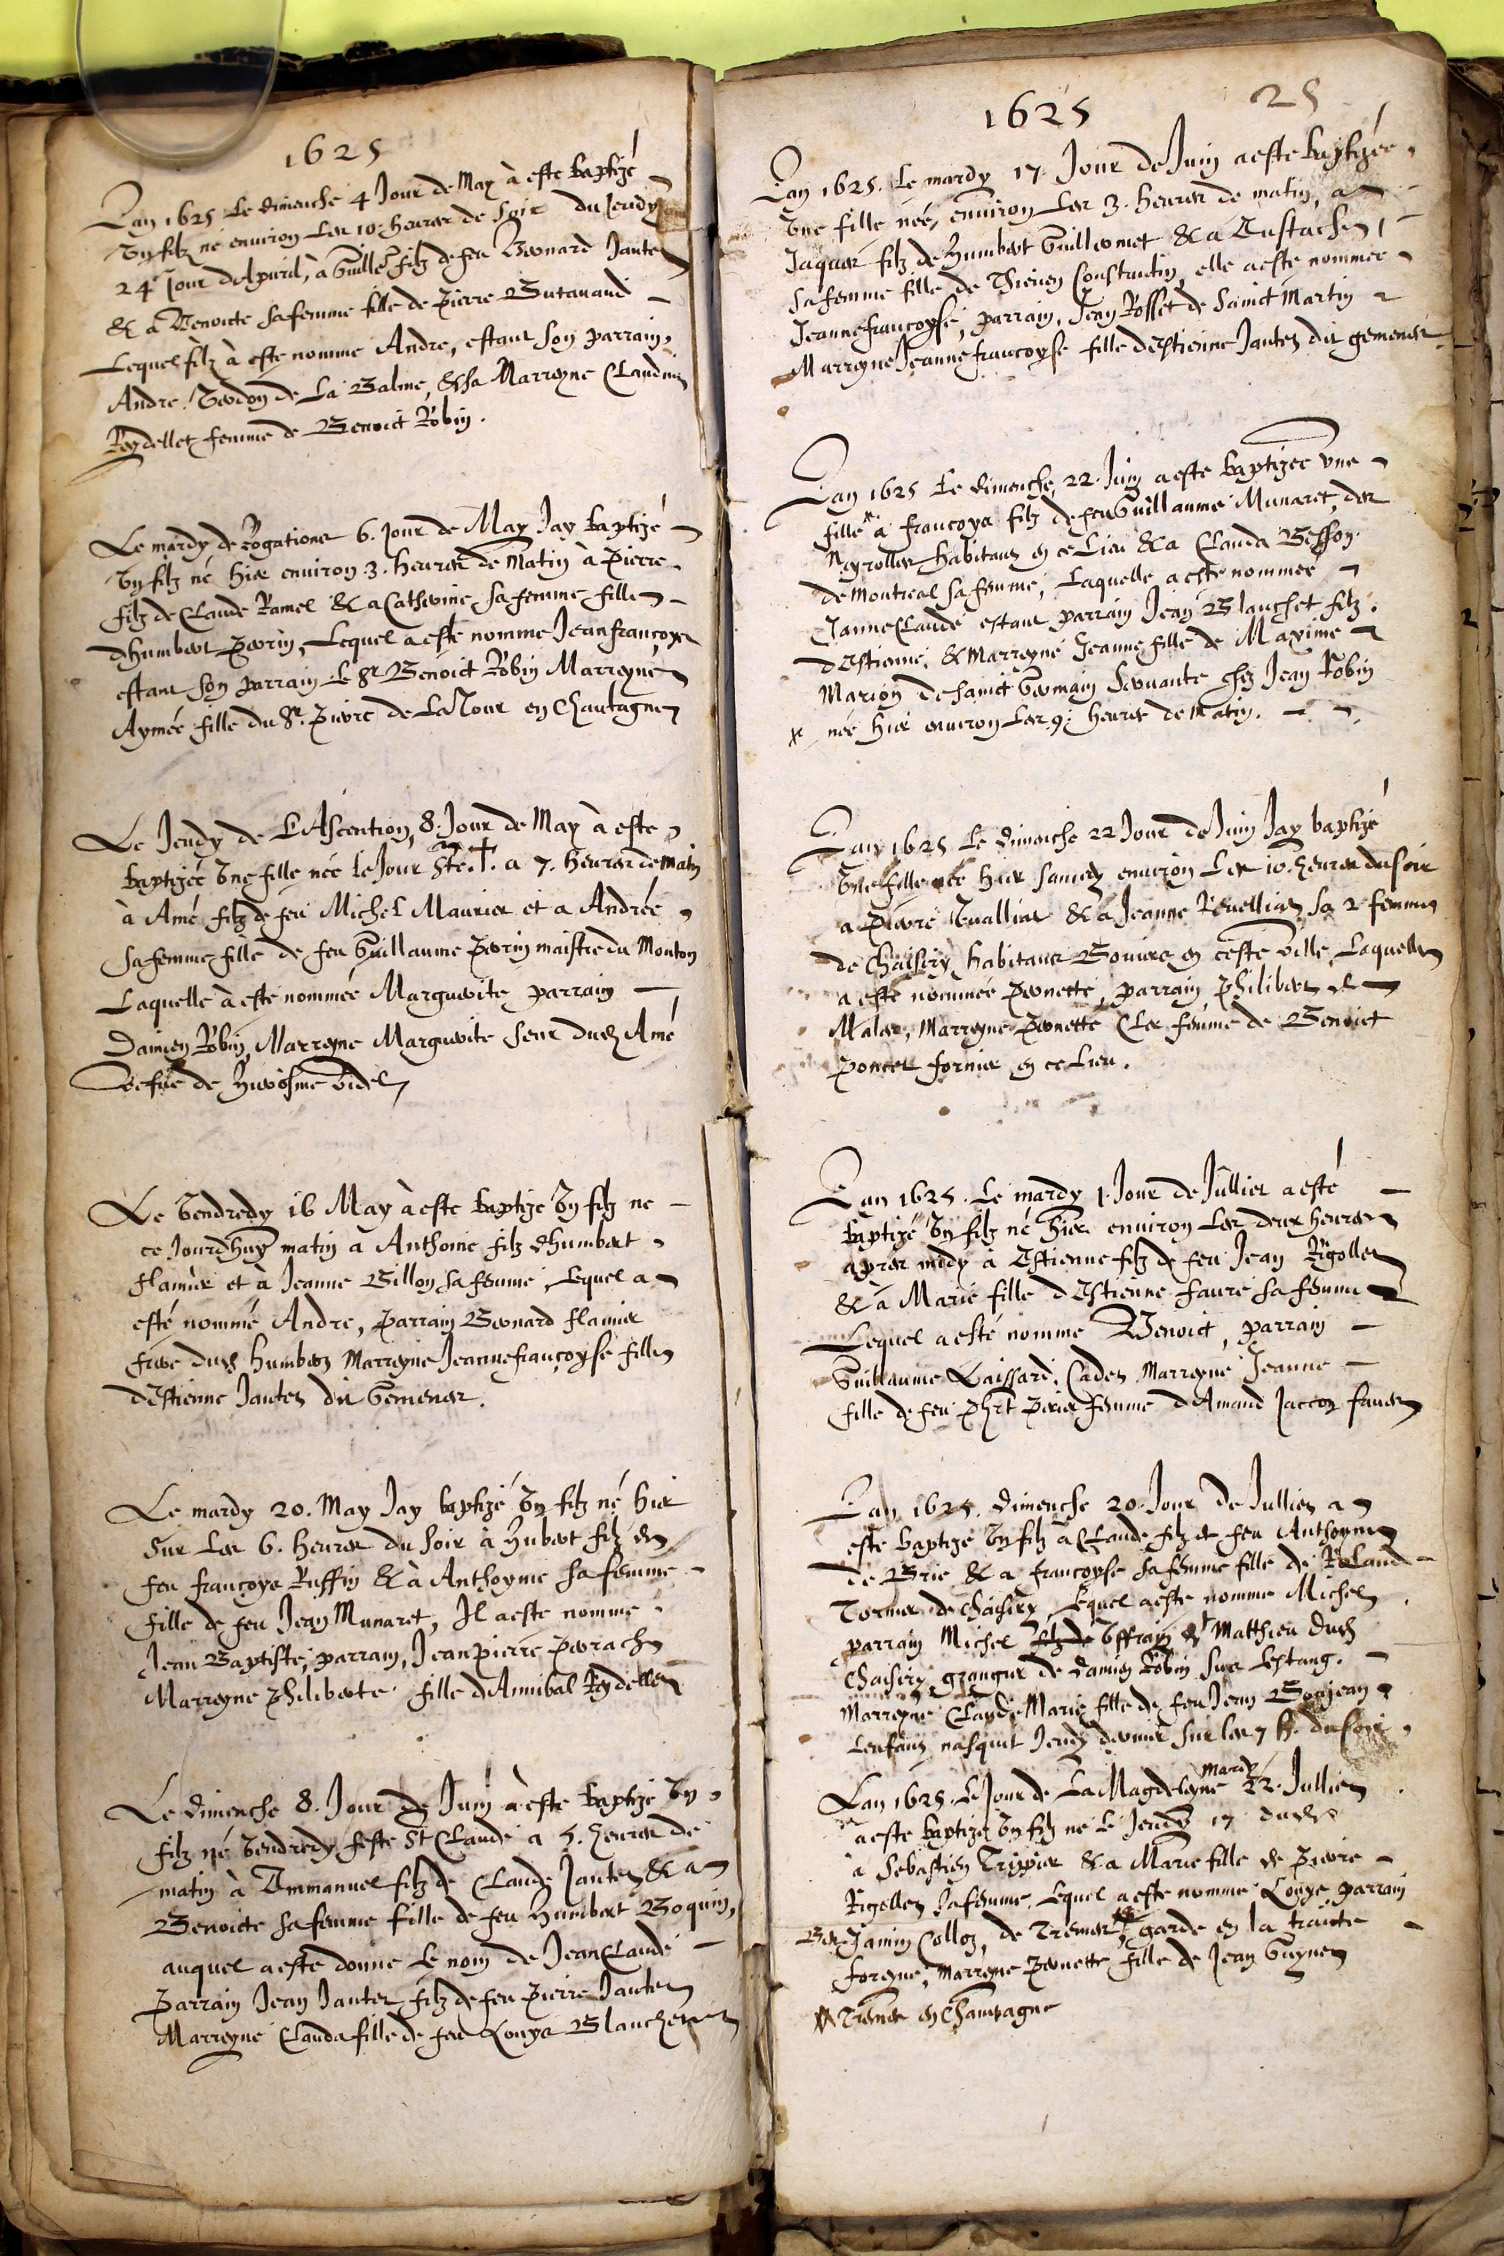 1625
Lan 1625 Le dimenche 4 Jour de May à este baptizé
Un filz né environ Les 10. heures de soir du Jeudy
24 Jour dApvril, à Guille filz de feu Bernard Jantet
& a Benoicte sa femme fille de Pierre Butavand
Lequel filz à este nomme Andre, estant son parrain,
Andre de La Balme, & sa Marreyne Claudine
Reydellet femme de Benoict Robin.
Le mardy de Rogations 6. Jour de May Jay baptizé
Un filz né hier environ 3. heures de Matin à Pierre
filz de Claude Ramel & a Catherine sa femme fille
dhumbert Perrin, Lequel a este nomme Jeanfrancoys
estant son parrain Le Sr Benoict Robin Marreyne
Aymée fille du Sr. Pierre de La Tour en Chautagne
Le Jeudy de LAscention, 8. Jour de May à este
baptizée Une fille née le Jour Ste. †. a 7. heures de matin
à Amé filz de feu Michel Maurier et a Andrée
sa femme fille de feu Guillaume Perrin maistre du Mouton
Laquelle à este nommée Marguerite parrain
Damien Robin, Marreyne Marguerite seur dud Amé
Vefve de Hierosme Videl
Le Vendredy 16 May à este baptizé Un filz ne
ce Jourdhuy matin à Anthoine filz dhumbert
flamier et à Jeanne Billon sa femme, Lequel a
esté nommé Andre, Parrain Bernard flamier
frere dud humbert Marreyne Jeannefrançoyse fille
dEstienne Jantet dit Gemenes.
Le mardy 20. May Jay baptizé Un filz né hier
Sur Les 6. heures du soir à Hubert filz de
feu françoys Ruffin & à Anthoyne sa femme
fille de feu Jean Munaret, Il a este nomme
Jean Baptiste, parrain, Jean Pierre Perrach
Marreyne Philiberte fille dAnnibal Reydellet
Le Dimenche 8. Jour de Juin à este baptizé Un
filz né Vendredy feste St Claude a 5. heures de
matin à Emmanuel filz de Claude Jantet & a
Benoicte sa femme fille de feu Humbert Boquin,
auquel a este donne Le nom de JeanClaude
Parrain Jean Jantet filz de feu Pierre Jantet
Marreyne Clauda fille de feu Louys Blanchet
1625 25
Lan 1625. Le mardy 17 Jour de Juin a este baptizée
Une fille née, environ Les 3. heures de matin, a
Jaques filz de Humbert Guillermet & a Eustache
sa femme fille de Thieven Constantin, elle a este nommee
Jeannefrancoyse, parrain, Jean Rosset de Sainct Martin
Marreyne Jeannefrancoyse fille dEstienne Jantet dit gemenes
Lan 1625 Le dimenche, 22. Juin a este baptizee une
fille * à francoys filz de feu Guillaume Munaret, des
Neyrolles habitant en ce Lieu & a Clauda Besson
de Montreal sa femme, Laquelle a este nommee
JanneClaude estant parrain Jean Blanchet filz
dEstienne, & Marreyne Jeanne fille de Maxime
Marion de Sainct Germain Servante chez Jean Robin
* née hier environ Les 9. heures de Matin.
Lan 1625 Le dimenche 22 Jour de Juin Jay baptizé
Une fille née hier samedy environ Les 10. heures du soir
a Pierre & a Jeanne sa 2 femme
de Chaisiry habitant en ceste ville, Laquelle
a esté nommée Pernette, parrain Philibert
Males, Marreyne Pernette femme de Benoict
Poncet fornier en ce Lieu.
Lan 1625. Le mardy 1 Jour de Jullier a esté
baptizé Un filz né hier environ Les deux heures
apres midy à Estienne filz de feu Jean Rigollet
& à Marie fille dEstienne Favre sa femme
Lequel a esté nomme Benoict, parrain
Guillaume Laissard, Cadet Marreyne Jeanne
fille de feu femme dAmand Jaccon
Lan 1625. Dimenche 20 Jour de Jullier a
este baptizé Un filz à Claude filz de feu Anthoyne
de Brie & a francoyse sa femme fille de Roland
Tornier de Chaisiry Lequel a este nomme Michel
parrain Michel filz de Matthieu dud
Chaisiry granger de Damien Robin sur Lestang.
Marreyne Claude Marie fille de feu Jean Bonjean
Lenfant nasquit Jeudy dernier sur les 7 h. du soir
Lan 1625. Le Jour de La Magdeleyne mardy 22. Jullier
a este baptizé Un filz né Le Jeudy 17 dud
a Sebastien Trippier & a Marie fille de Pierre
Rigollet sa femme, Lequel a este nomme Louys parrain
Benjamin Collot, de Tremes * garde en la traicte
foreyne, Marreyne Pernette fille de Jean Guynet
* Tremes en Champagne